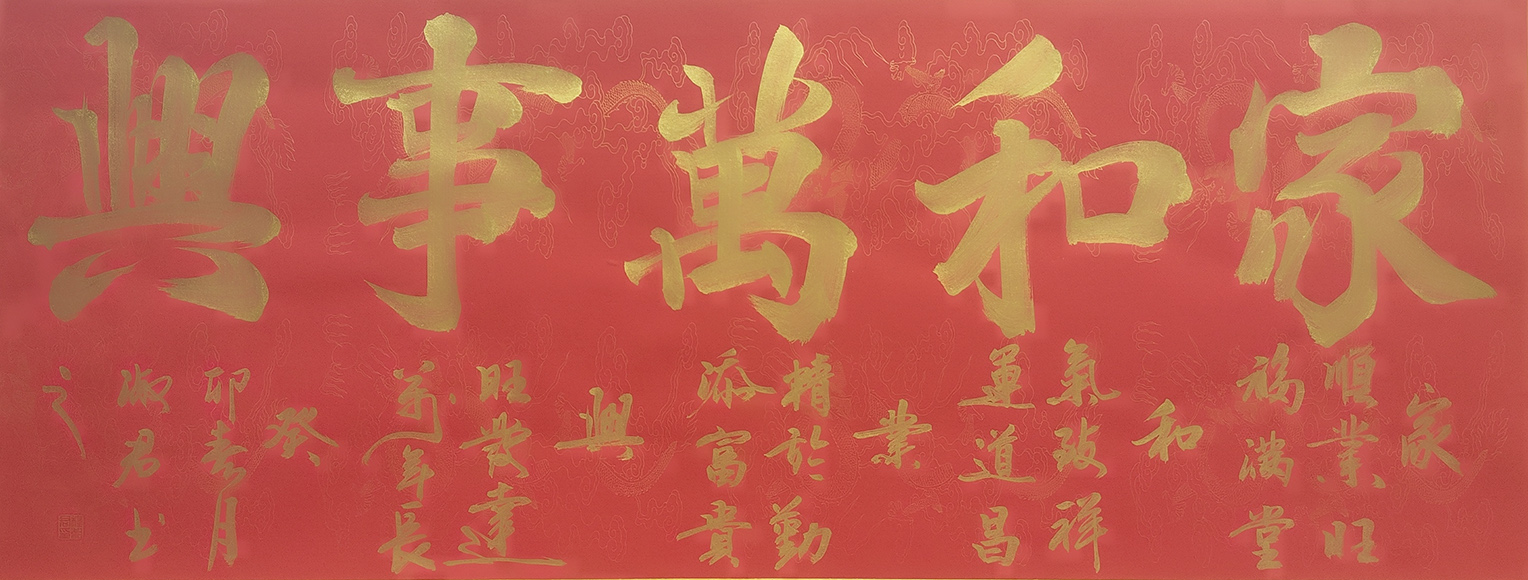 家和萬事興
家
順業旺
福滿堂
和
氣致祥
運道昌
業
精於勤
添富貴
興
旺發達
萬年長
癸
卯春月
君书
之